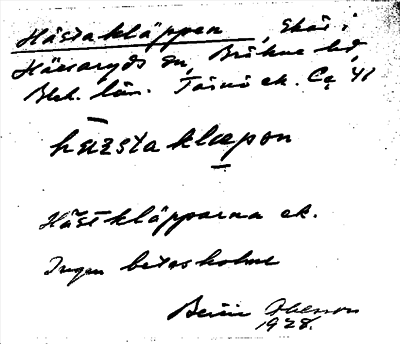 Hästakläppen, Skär i
Hällaryds sn, Bräkne hd,
Blek. län. Tärnö ek. Ca 41
hæsta klæpon
Hästkläpparna ek.
Ingen beteskolme
Olsson
1928.